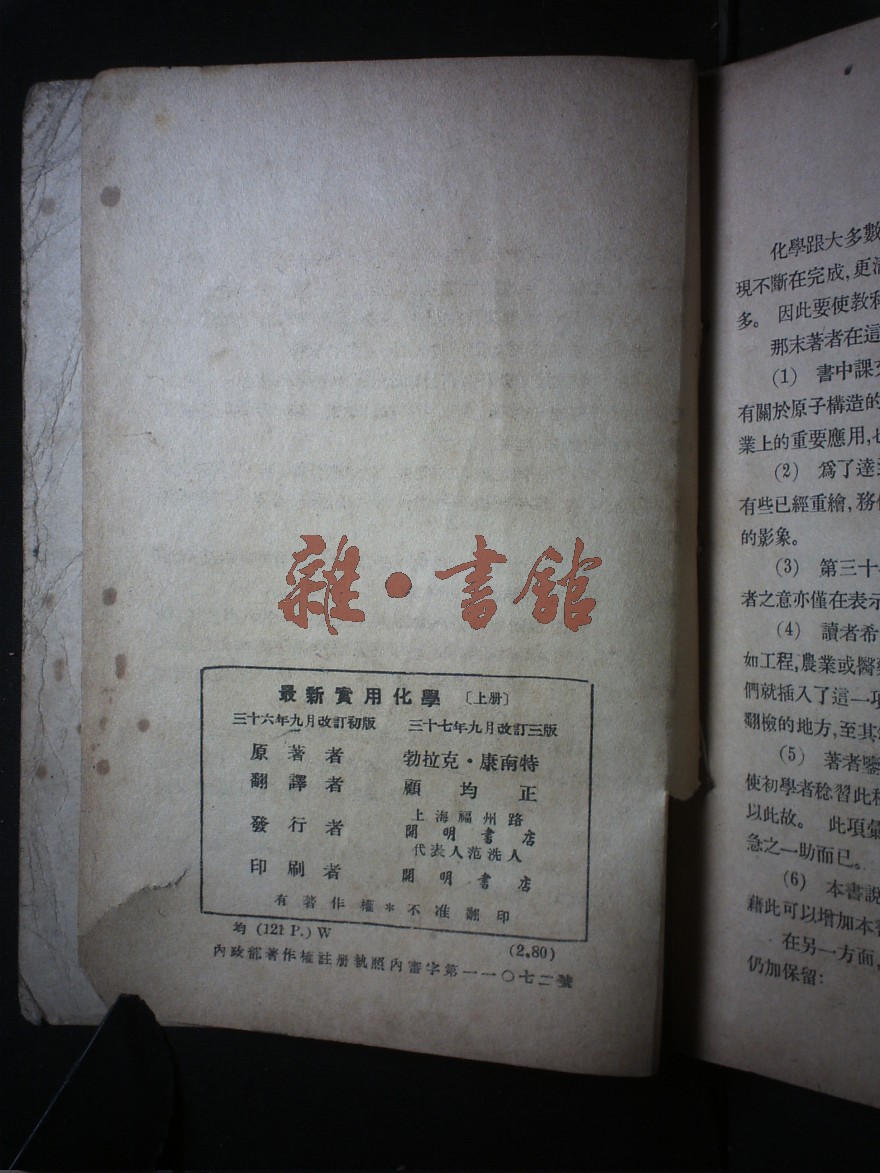 雜·書館
最新實用化學〔上册〕
三十六年九月改訂初版 三十七年九月改訂三版
原著者 勃拉克·康南特
翻譯者 顧均正
發行者 上海福州路
開明書店
代表人范洗人
印刷者 開明書店
有著作權*不准翻印
均 (121 P.) W (2.80)
內政部著作權註册執照內審字第一一〇七二號
化學跟大多數
現不斷在完成,更
多。 因此要使教
那末著者在這
(1) 書中課
有關於原子構造的
業上的重要應用,
(2) 爲了達
有些已經重繪,務
的影象。
(3) 第三十
者之意亦僅在表示
(4) 讀者希
如工程,農業或醫
們就插入了這一項
翻檢的地方,至其
(5) 著者鑒
使初學者稔習此
以此故。 此項彙
急之一助而已。
(6) 本書說
藉此可以增加本書
在另一方面,
仍加保留: